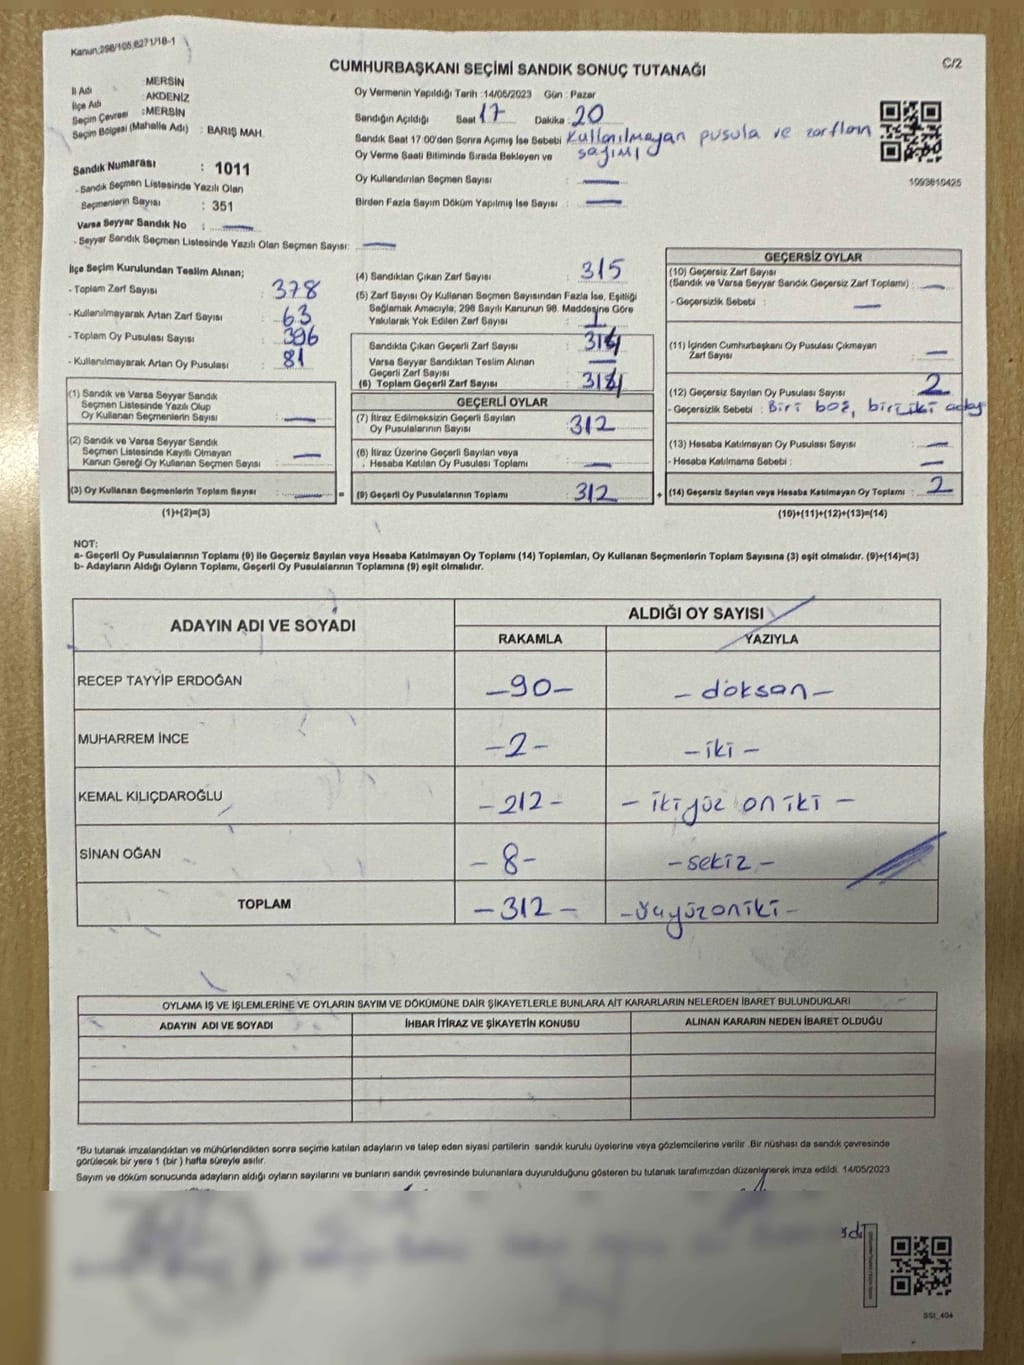 Kanun;298/105,6271/18-1
C/2
CUMHURBAŞKANI SEÇİMİ SANDIK SONUÇ TUTANAĞI
İl Adı : MERSİN
İlçe Adı : AKDENİZ
Seçim Çevresi : MERSİN
Seçim Bölgesi (Mahalle Adı) : BARIŞ MAH.
Sandık Numarası : 1011
- Sandık Seçmen Listesinde Yazılı Olan
Seçmenlerin Sayısı : 351
Varsa Seyyar Sandık No : —
- Seyyar Sandık Seçmen Listesinde Yazılı Olan Seçmen Sayısı: —
Oy Vermenin Yapıldığı Tarih :14/05/2023 Gün : Pazar
Sandığın Açıldığı Saat 17 Dakika : 20
Sandık Saat 17:00'den Sonra Açımış İse Sebebi Kullanılmayan pusula ve zarfların
Oy Verme Saati Bitiminde Sırada Bekleyen ve sayımı
Oy Kullandırılan Seçmen Sayısı : —
Birden Fazla Sayım Döküm Yapılmış İse Sayısı : —
1093610425
İlçe Seçim Kurulundan Teslim Alınan;
- Toplam Zarf Sayısı : 378
- Kullanılmayarak Artan Zarf Sayısı : 63
- Toplam Oy Pusulası Sayısı : 396
- Kullanılmayarak Artan Oy Pusulası : 81
(1) Sandık ve Varsa Seyyar Sandık
Seçmen Listesinde Yazılı Olup
Oy Kullanan Seçmenlerin Sayısı : —
(2) Sandık ve Varsa Seyyar Sandık
Seçmen Listesinde Kayıtlı Olmayan
Kanun Gereği Oy Kullanan Seçmen Sayısı : —
(3) Oy Kullanan Seçmenlerin Toplam Sayısı : — =
(1)+(2)=(3)
(4) Sandıktan Çıkan Zarf Sayısı : 315
(5) Zarf Sayısı Oy Kullanan Seçmen Sayısından Fazla İse, Eşitliği
Sağlamak Amacıyla; 298 Sayılı Kanunun 98. Maddesine Göre
Yakılarak Yok Edilen Zarf Sayısı : 1
Sandıkta Çıkan Geçerli Zarf Sayısı : 314
Varsa Seyyar Sandıktan Teslim Alınan
Geçerli Zarf Sayısı : —
(6) Toplam Geçerli Zarf Sayısı : 314
GEÇERLİ OYLAR
(7) İtiraz Edilmeksizin Geçerli Sayılan
Oy Pusulalarının Sayısı : 312
(8) İtiraz Üzerine Geçerli Sayılan veya
Hesaba Katılan Oy Pusulası Toplamı : —
(9) Geçerli Oy Pusulalarının Toplamı : 312 +
GEÇERSİZ OYLAR
(10) Geçersiz Zarf Sayısı
(Sandık ve Varsa Seyyar Sandık Geçersiz Zarf Toplamı) : —
- Geçersizlik Sebebi : —
(11) İçinden Cumhurbaşkanı Oy Pusulası Çıkmayan
Zarf Sayısı : —
(12) Geçersiz Sayılan Oy Pusulası Sayısı : 2
- Geçersizlik Sebebi : Biri boş, biri iki aday
(13) Hesaba Katılmayan Oy Pusulası Sayısı : —
- Hesaba Katılmama Sebebi : —
(14) Geçersiz Sayılan veya Hesaba Katılmayan Oy Toplamı : 2
(10)+(11)+(12)+(13)=(14)
NOT:
a- Geçerli Oy Pusulalarının Toplamı (9) ile Geçersiz Sayılan veya Hesaba Katılmayan Oy Toplamı (14) Toplamları, Oy Kullanan Seçmenlerin Toplam Sayısına (3) eşit olmalıdır. (9)+(14)=(3)
b- Adayların Aldığı Oyların Toplamı, Geçerli Oy Pusulalarının Toplamına (9) eşit olmalıdır.
ADAYIN ADI VE SOYADI
ALDIĞI OY SAYISI
RAKAMLA YAZIYLA
RECEP TAYYİP ERDOĞAN –90– – doksan –
MUHARREM İNCE –2– – iki –
KEMAL KILIÇDAROĞLU –212– – ikiyüz on iki –
SİNAN OĞAN –8– – sekiz –
TOPLAM –312– – üçyüzoniki –
OYLAMA İŞ VE İŞLEMLERİNE VE OYLARIN SAYIM VE DÖKÜMÜNE DAİR ŞİKAYETLERLE BUNLARA AİT KARARLARIN NELERDEN İBARET BULUNDUKLARI
ADAYIN ADI VE SOYADI İHBAR İTİRAZ VE ŞİKAYETİN KONUSU ALINAN KARARIN NEDEN İBARET OLDUĞU
*Bu tutanak imzalandıktan ve mühürlendikten sonra seçime katılan adayların ve talep eden siyasi partilerin sandık kurulu üyelerine veya gözlemcilerine verilir .Bir nüshası da sandık çevresinde
görülecek bir yere 1 (bir ) hafta süreyle asılır.
Sayım ve döküm sonucunda adayların aldığı oyların sayılarını ve bunların sandık çevresinde bulunanlara duyurulduğunu gösteren bu tutanak tarafımızdan düzenlenerek imza edildi. 14/05/2023
SSI_404